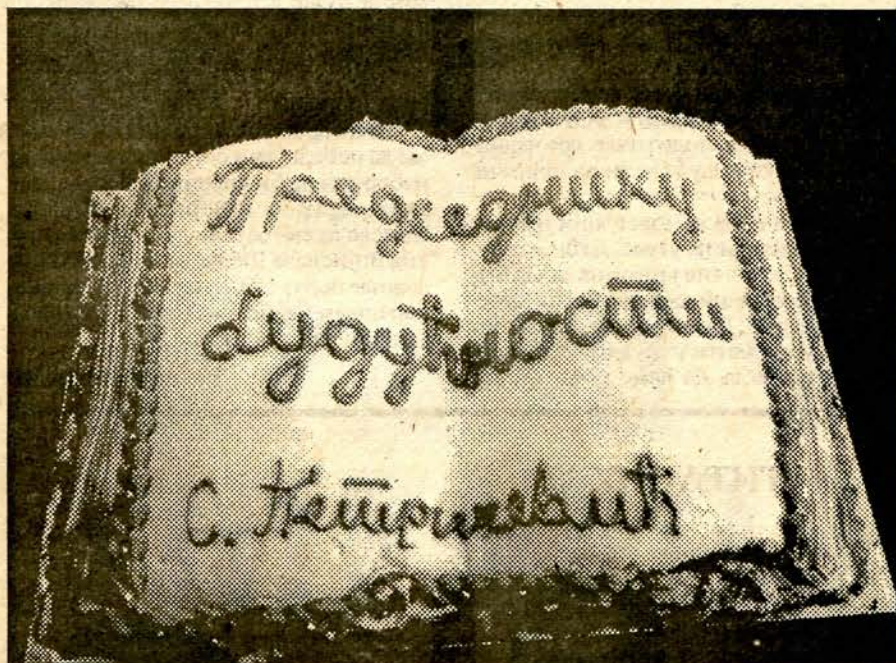 Председнику
будућности
С. Петричевић